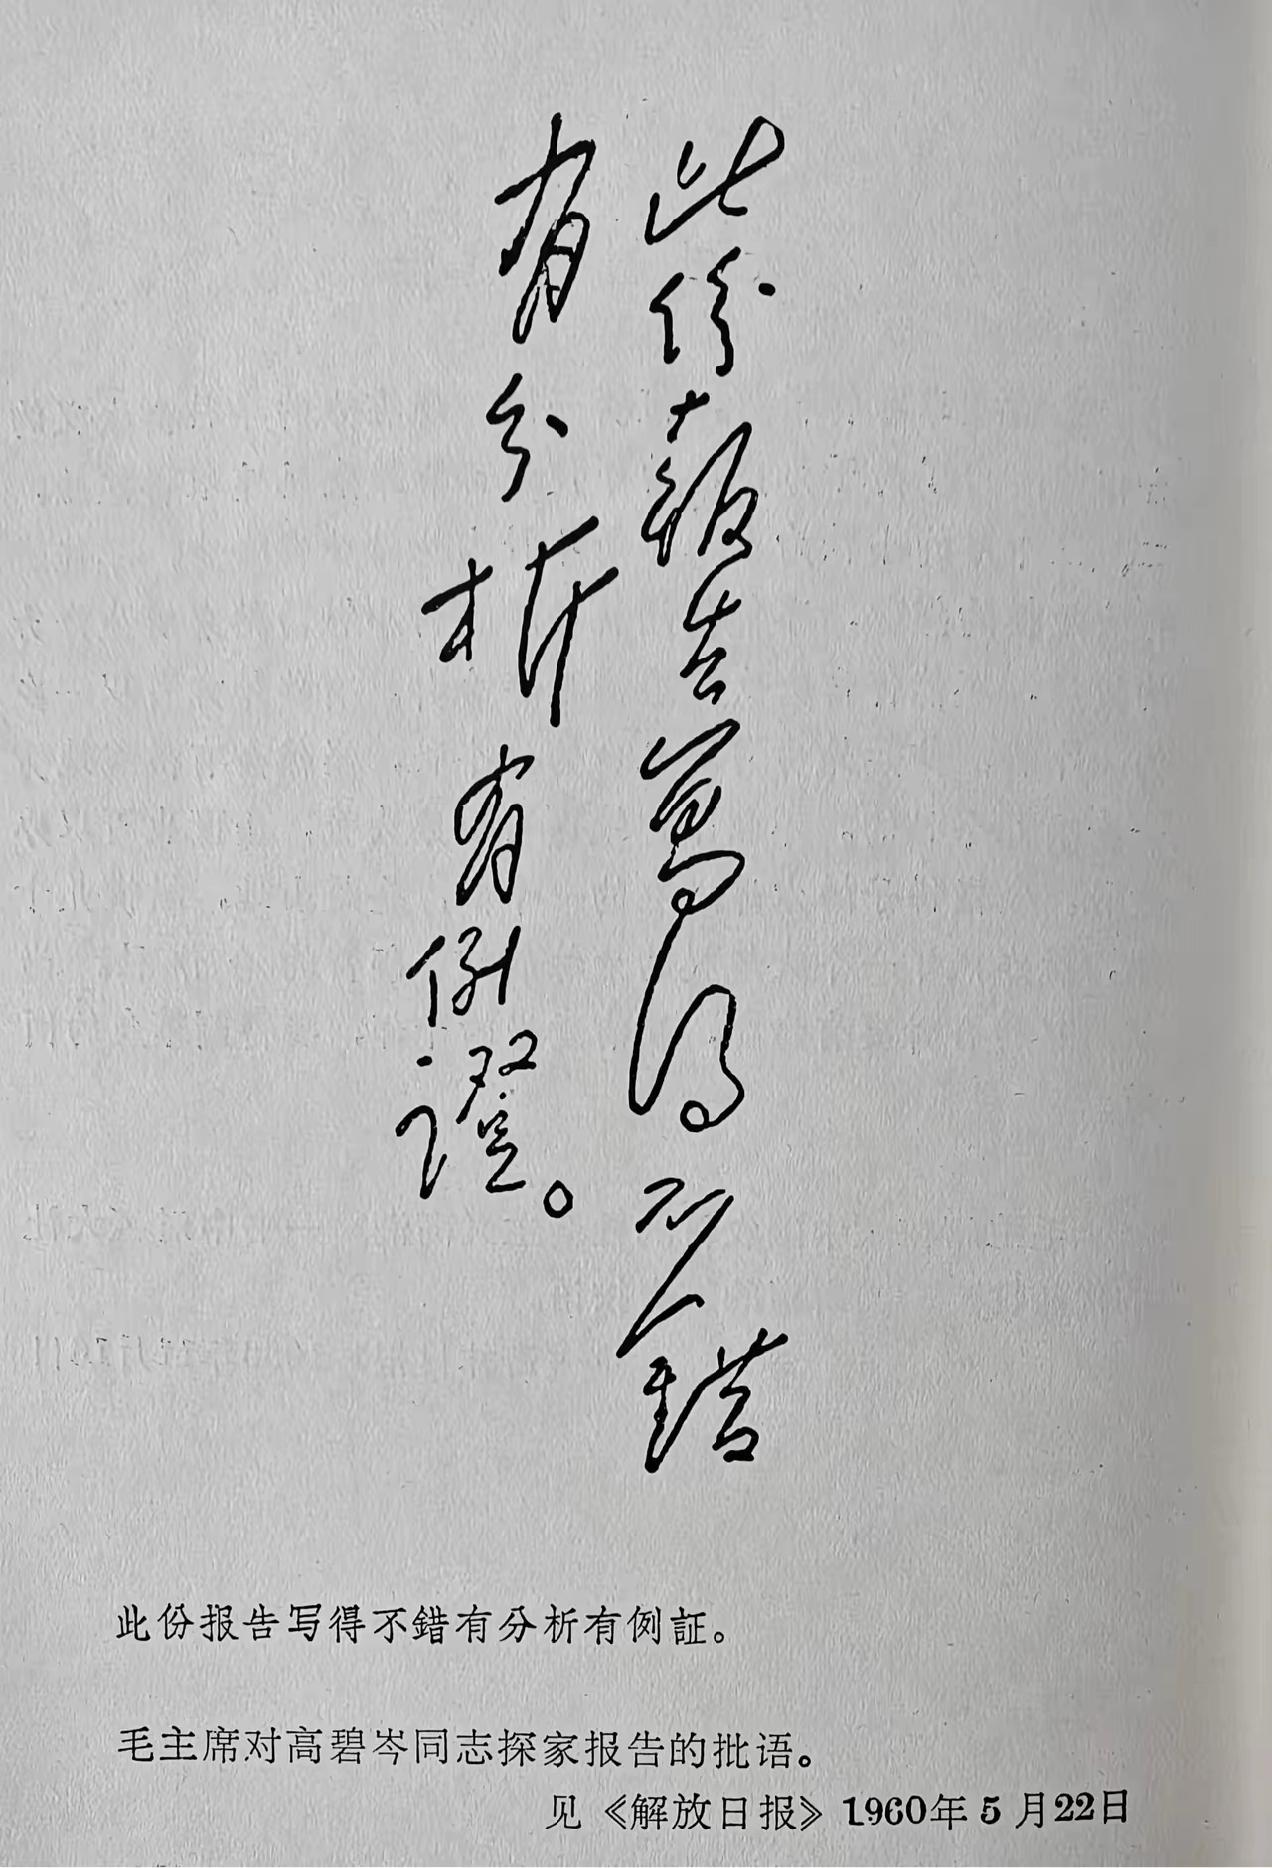 此份報告寫得不錯
有分析有例證。
此份报告写得不錯有分析有例証。
毛主席对高碧岑同志探家报告的批语。
见《解放日报》1960年5月22日